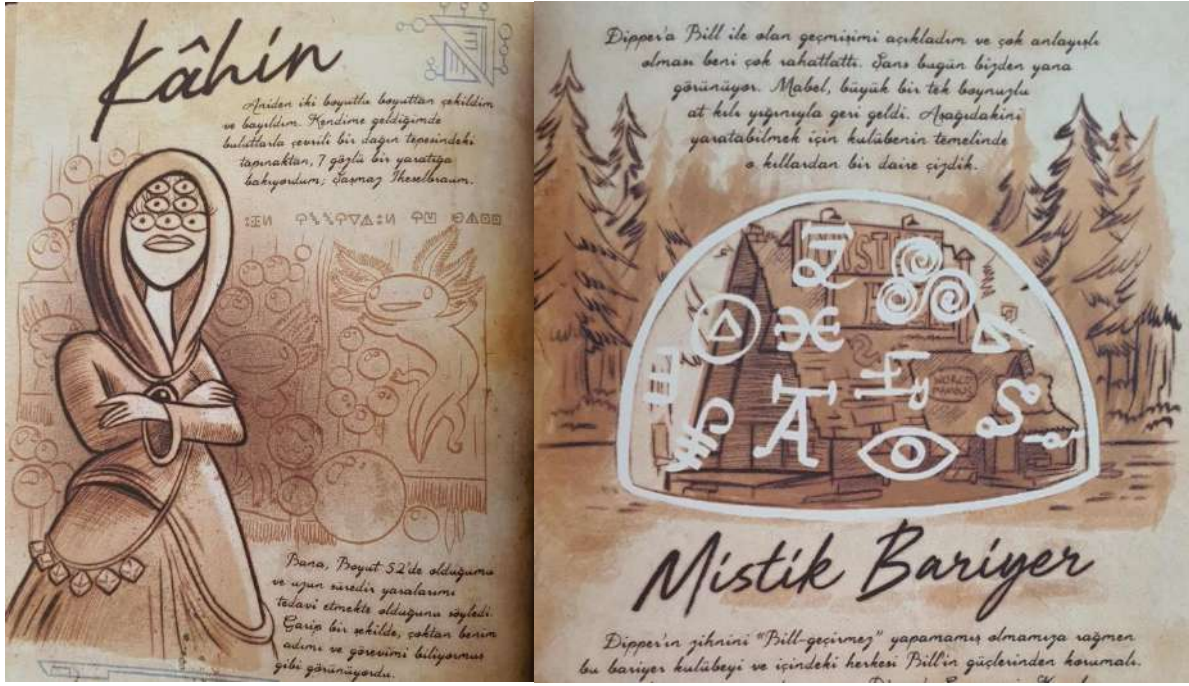 Kâhin
Aniden iki boyutlu boyuttan çekildim
ve bayıldım. Kendime geldiğimde
bulutlarla çevrili bir dağın tepesindeki
tapınaktan, 7 gözlü bir yaratığa
bakıyordum; Şaşmaz Jheselbraum.
Bana, Boyut 52'de olduğumu
ve uzun süredir yaralarımı
tedavi etmekte olduğunu söyledi.
Garip bir şekilde, çoktan benim
adımı ve görevimi biliyormuş
gibi görünüyordu.
Dipper'a Bill ile olan geçmişimi açıkladım ve çok anlayışlı
olması beni çok rahatlattı. Şans bugün bizden yana
görünüyor. Mabel, büyük bir tek boynuzlu
at kılı yığınıyla geri geldi. Aşağıdakini
yaratabilmek için kulübenin temelinde
o kıllardan bir daire çizdik.
WORLD
FAMOUS
Mistik Bariyer
Dipper'ın zihnini "Bill-geçirmez" yapamamış olmamıza rağmen
bu bariyer kulübeyi ve içindeki herkesi Bill'in güçlerinden korumalı.